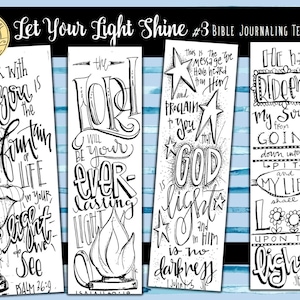 Let Your Light Shine #3 BIBLE JOURNALING TE
with
you
is
the
fountain
of
LIFE
in YOUR
light
we
SEE
PSALM 36:9
the
LORD
will
be your
ever-
lasting
LIGHT
This is the
message
we have
heard from
Him
AND
PROCLAIM
to you
that
GOD
is
light
AND
in HIM
is no
darkness
1 JOHN 1:5
He ha
REDEEM
My So
FROM
GOIN
down into
PIT
AND
MY LIF
shall
LO
UPON T
light